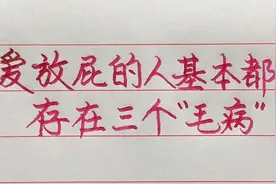 爱放屁的人基本都
存在三个"毛病"